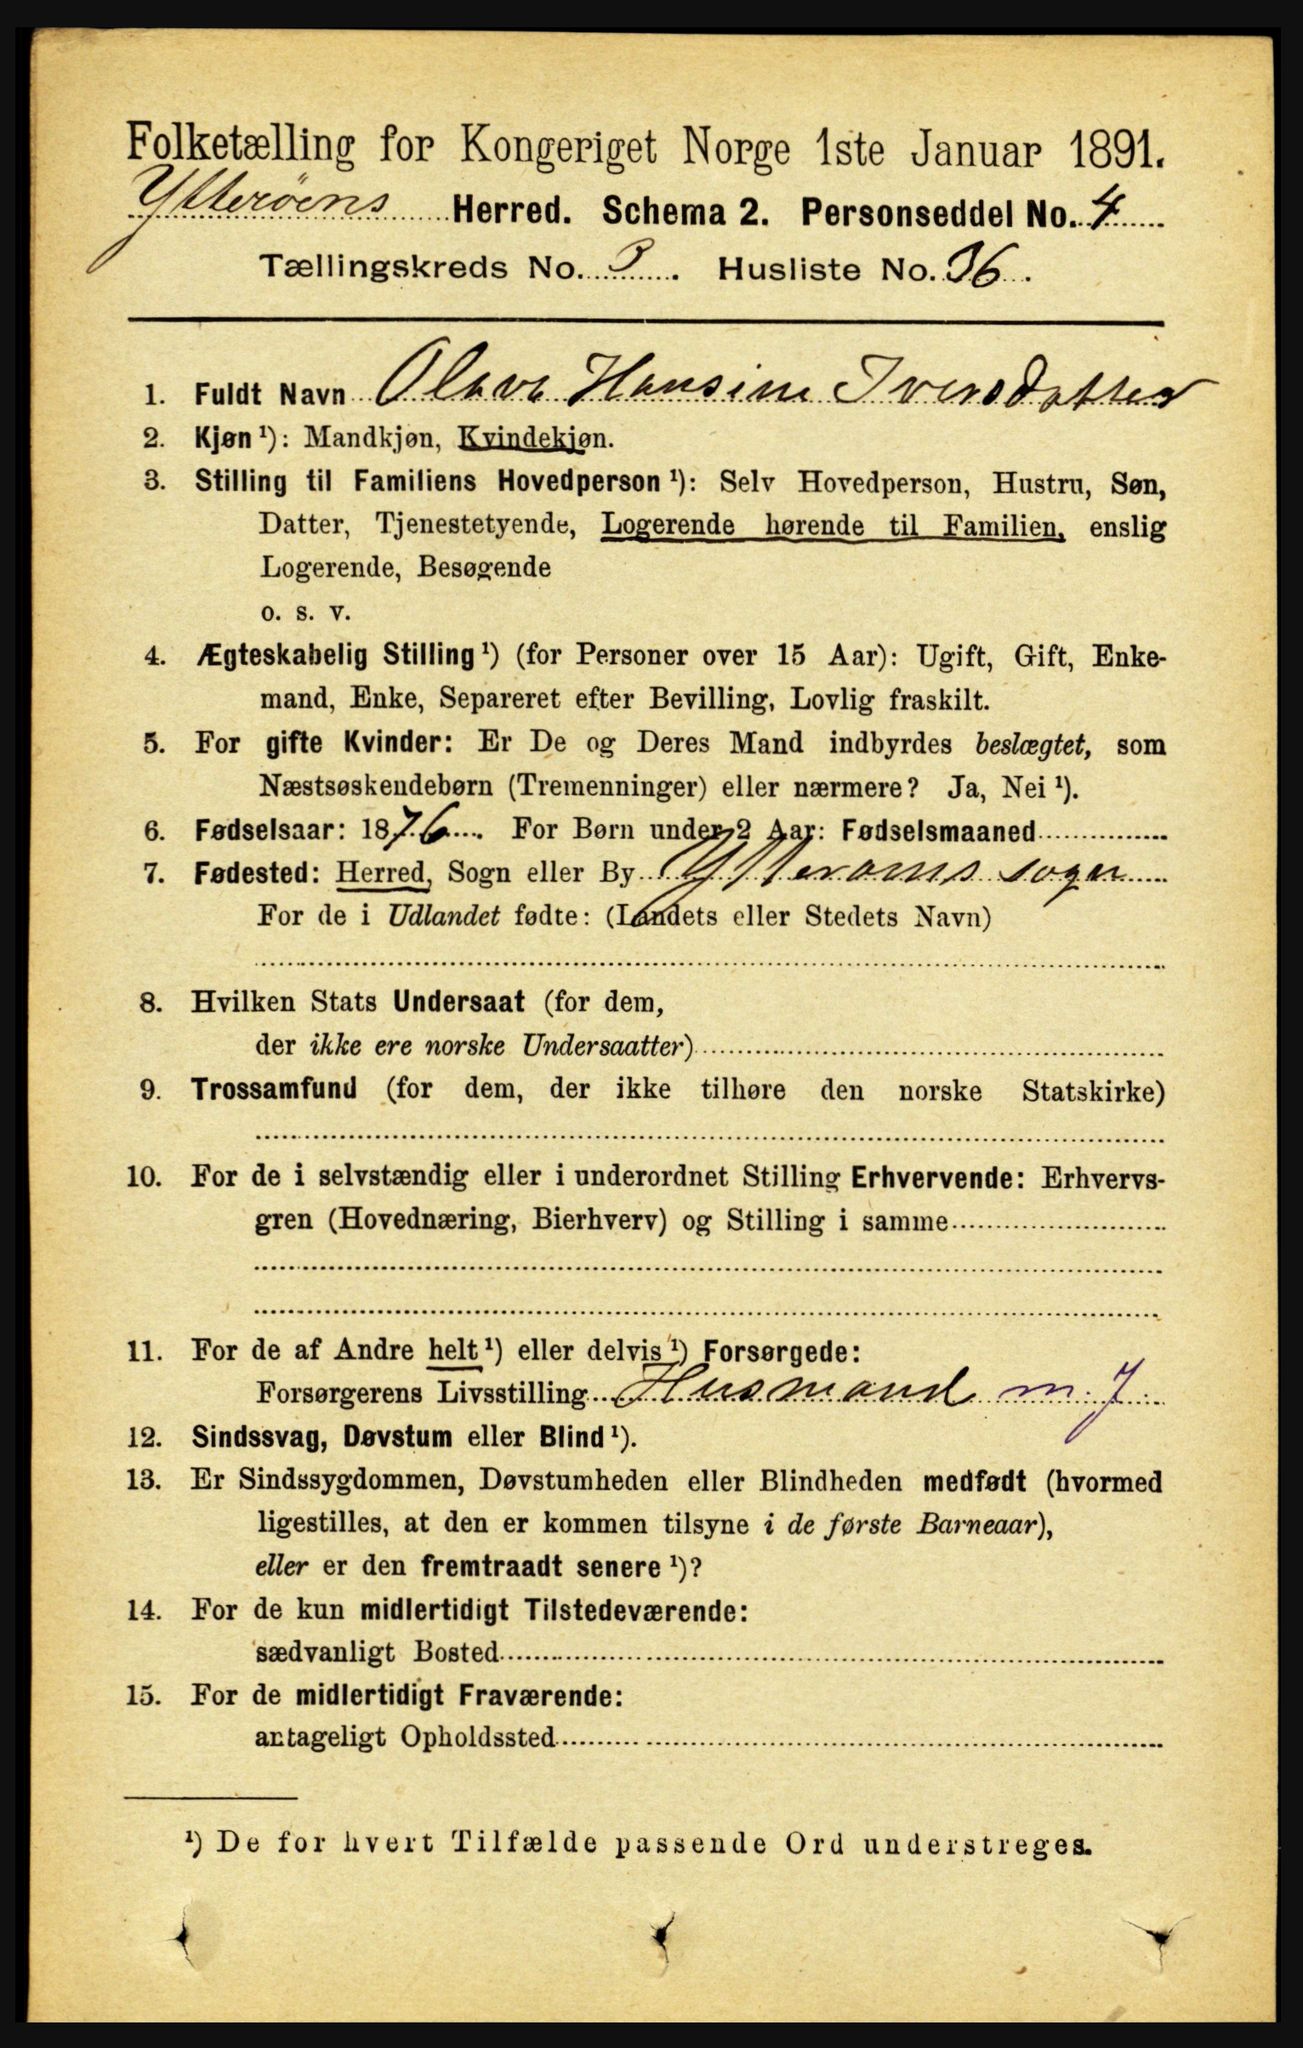 Folketælling for Kongeriget Norge 1ste Januar 1891.
Ytterøens Herred. Schema 2. Personseddel No. 4
Tællingskreds No. 3. Husliste No. 36.
1. Fuldt Navn Olava Hansine Iversdatter
2. Kjøn ¹): Mandkjøn, Kvindekjøn.
3. Stilling til Familiens Hovedperson ¹): Selv Hovedperson, Hustru, Søn,
Datter, Tjenestetyende, Logerende hørende til Familien, enslig
Logerende, Besøgende
o. s. v.
4. Ægteskabelig Stilling ¹) (for Personer over 15 Aar): Ugift, Gift, Enke-
mand, Enke, Separeret efter Bevilling, Lovlig fraskilt.
5. For gifte Kvinder: Er De og Deres Mand indbyrdes beslægtet, som
Næstsøskendebørn (Tremenninger) eller nærmere? Ja, Nei ¹).
6. Fødselsaar: 1876. For Børn under 2 Aar: Fødselsmaaned
7. Fødested: Herred, Sogn eller By Ytterøens sogn
For de i Udlandet fødte: (Landets eller Stedets Navn)
8. Hvilken Stats Undersaat (for dem,
der ikke ere norske Undersaatter)
9. Trossamfund (for dem, der ikke tilhøre den norske Statskirke)
10. For de i selvstændig eller i underordnet Stilling Erhvervende: Erhvervs-
gren (Hovednæring, Bierhverv) og Stilling i samme
11. For de af Andre helt ¹) eller delvis ¹) Forsørgede:
Forsørgerens Livsstilling Husmand m. J.
12. Sindssvag, Døvstum eller Blind ¹).
13. Er Sindssygdommen, Døvstumheden eller Blindheden medfødt (hvormed
ligestilles, at den er kommen tilsyne i de første Barneaar),
eller er den fremtraadt senere ¹)?
14. For de kun midlertidigt Tilstedeværende:
sædvanligt Bosted
15. For de midlertidigt Fraværende:
antageligt Opholdssted
¹) De for hvert Tilfælde passende Ord understreges.